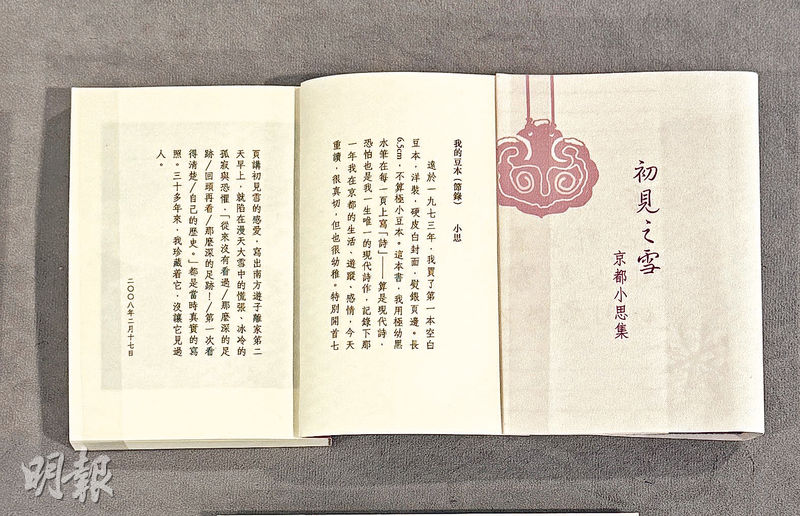 初見之雪
京都小思集
我的豆本(節錄)　小思
遠於一九七三年,我買了第一本空白
豆本,洋裝,硬皮白封面,熨銀頁邊。長
6.5cm,不算極小豆本。這本書,我用極幼黑
水筆在每一頁上寫「詩」——算是現代詩,
恐怕也是我一生唯一的現代詩作,記錄下那
一年我在京都的生活、遊蹤、感情,今天
重讀,很真切,但也很幼稚。特別開首七
頁講初見雪的感愛,寫出南方遊子離家第二
天早上,就陷在漫天大雪中的慌張、冰冷的
孤寂與恐懼,「從來沒有看過/那麼深的足
跡/回頭再看/那麼深的足跡!/第一次看
得清楚/自己的歷史。」都是當時真實的寫
照。三十多年來,我珍藏着它,沒讓它見過
人。
二〇〇八年二月十七日
明報